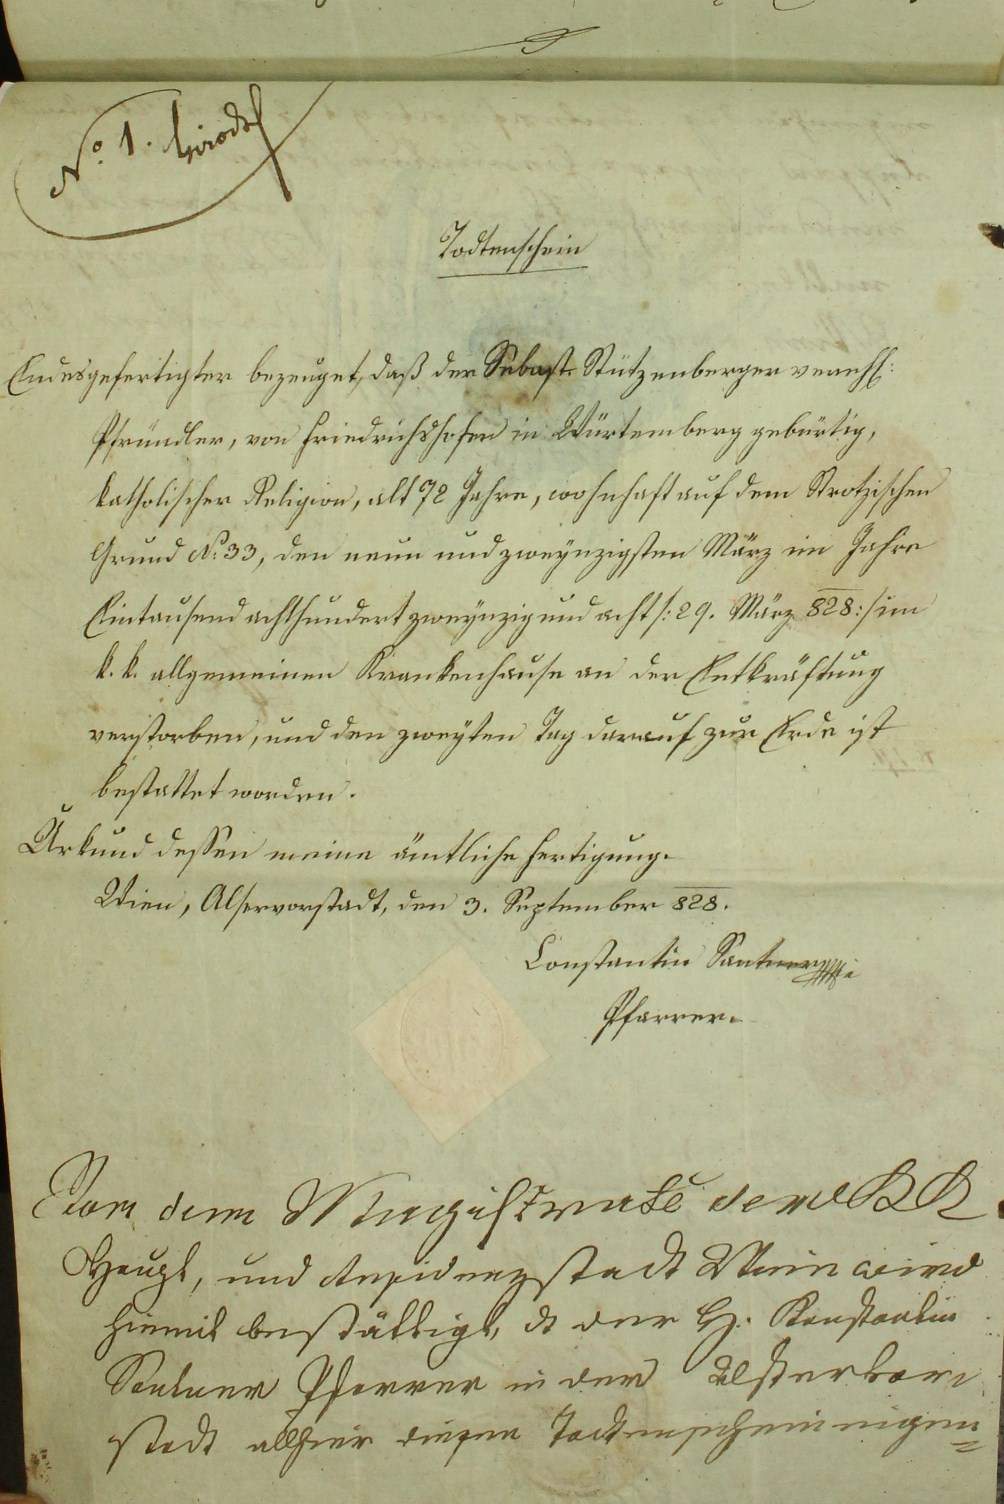 No. 1.
Todtenschein
Endesgefertigter bezeuget, daß der Sebast. Stützenberger verehl:
Pfründler, von Friedrichshofen in Würtemberg gebürtig,
katholischer Religion, alt 72 Jahre, wohnhaft auf dem Strotzischen
Grund No. 33, den neun und zwaynzigsten März im Jahre
Eintausend achthundert zwaynzig und acht /: 29. März 828 :/ im
k. k. allgemeinen Krankenhause an der Entkräftung
verstorben, und den zweyten Tag darauf zur Erde ist
bestattet worden.
Urkund dessen meine ämtliche Fertigung.
Wien, Alservorstadt, den 3. September 828.
Constantin Santner
Pfarrer.
Von dem Magistrate der K K
Haupt, und Residenzstadt Wien wird
hiemit bestättigt, dß der H. Konstantin
Santner Pfarrer in der Alservor
stadt allhier diesen Todtenschein eigen=